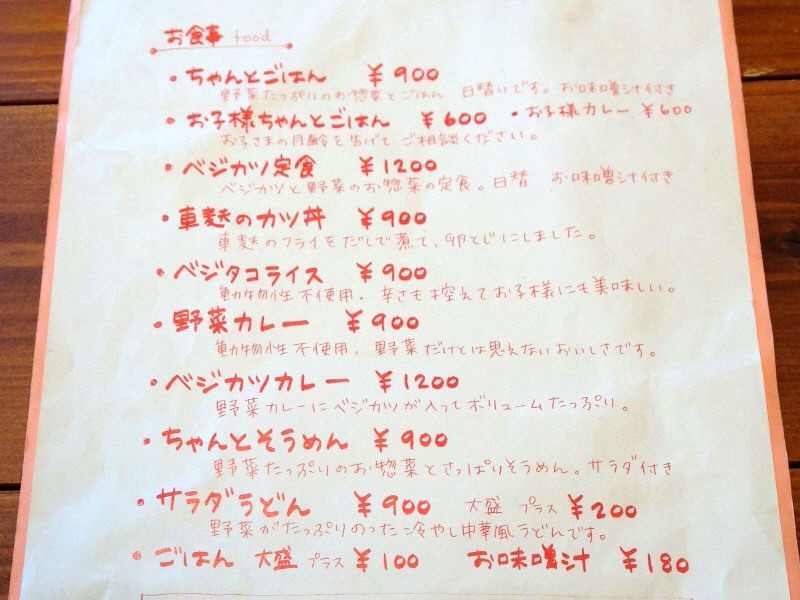 お食事 food
・ちゃんとごはん ¥900
野菜たっぷりのお惣菜とごはん 日替りです。お味噌汁付き
・お子様ちゃんとごはん ¥600 ・お子様カレー ¥600
お子さまの月齢を告げて ご相談ください。
・ベジカツ定食 ¥1200
ベジカツと野菜のお惣菜の定食。日替 お味噌汁付き
・車麩のカツ丼 ¥900
車麩のフライをだしで煮て、卵とじにしました。
・ベジタコライス ¥900
動物性不使用。辛さも控えてお子様にも美味しい。
・野菜カレー ¥900
動物性不使用。野菜だけとは思えないおいしさです。
・ベジカツカレー ¥1200
野菜カレーにベジカツが入ってボリュームたっぷり。
・ちゃんとそうめん ¥900
野菜たっぷりのお惣菜とさっぱりそうめん。サラダ付き
・サラダうどん ¥900 大盛 プラス ¥200
野菜がたっぷりのった冷やし中華風うどんです。
・ごはん 大盛 プラス ¥100 お味噌汁 ¥180